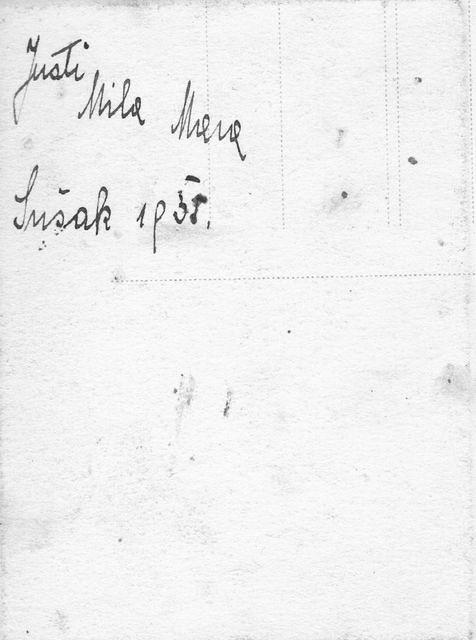 Justi
Mila Mara
Sušak 1935.